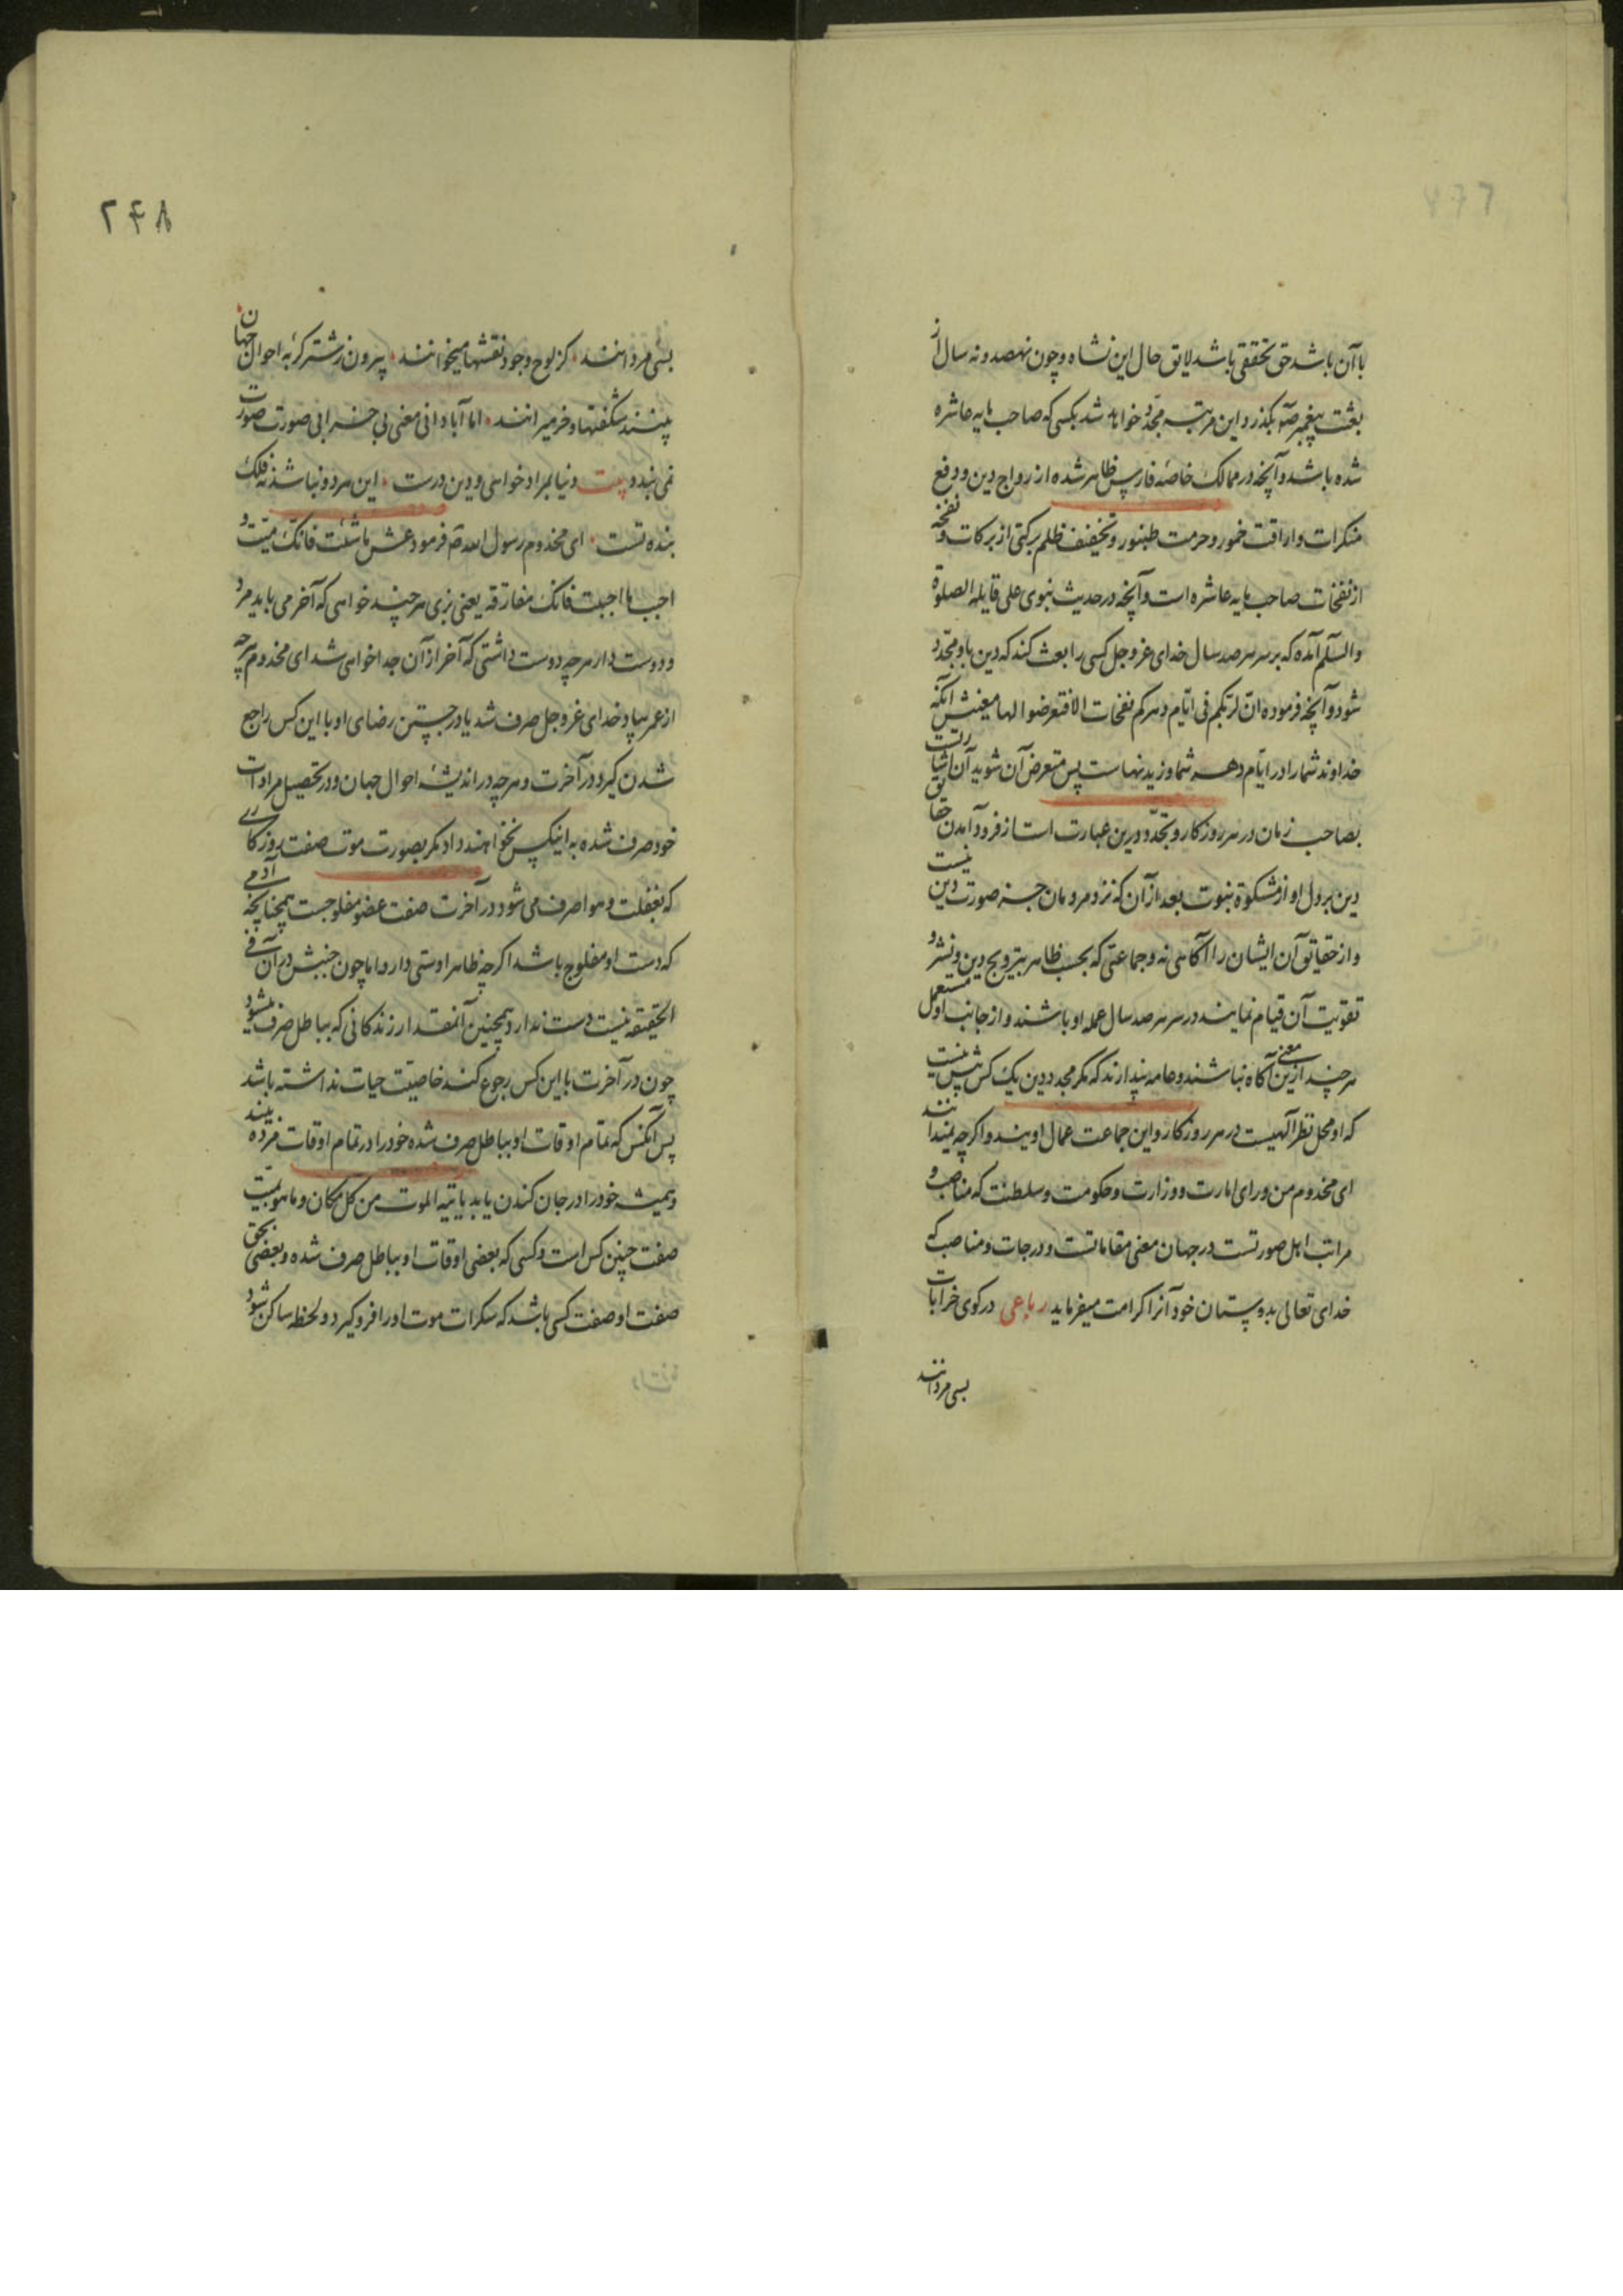 با آن باشد حق تحققی باشد لایق حال این نشاه و چون نهصد و نه سال از
بعثت پیغمبر صم بگذرد این مرتبه مجدد خواهد شد بکسی که صاحب مایه عاشره
شده باشد و آنچه در ممالک خاصه فارس ظاهر شده از رواج دین و دفع
منکرات و اراقت خمور و حرمت طنبور و تخفیف ظلم برکتی از برکات و نفخه
از نفخات صاحب مایه عاشره است و آنچه در حدیث نبوی علی قایله الصلوة
والسلم آمده که بر سر هر صد سال خدای عز و جل کسی را بعث کند که دین باو مجدد
شود و آنچه فرموده ان لربکم فی ایام دهرکم نفخات الا فتعرضوا لها معنیش آنکه
خداوند شما را در ایام دهر شما وزیدنهاست پس متعرض آن شوید آن اشارت
بصاحب زمان در هر روزکار و تجدد دین عبارت است از فرود آمدن حقایق
دین بر دل او از مشکوة نبوت بعد از آن که نزد مردمان جز صورت دین نیست
و از حقایق آن ایشان را آکاهی نه و جماعتی که بحسب ظاهر بترویج دین و نشر و
تقویت آن قیام نمایند در سر هر صد سال عمله او باشند و از جانب او مستعمل
هر چند ازین معنی آکاه نباشند و عامه پندارند که مکر مجدد دین یک کس بیش نیست
که او محل نظر آلهیست در هر روزکار و این جماعت عمال اویند و اکرچه نمیدانند
ای مخدوم من ورای امارت و وزارت و حکومت و سلطنت که مناصب و
مراتب اهل صورتست در جهان معنی مقاماتست و درجات و مناصب که
خدای تعالی بده پستان خود آنرا کرامت میفرماید رباعی در کوی خرابات
بسی مردانند
۲۴۸
بسی مردانند کز لوح وجود نقشها میخوانند بیرون ز شتر کربه احوال جهان
بینند شکفتها و خر میرانند اما آبادانی معنی بی خرابی صورت صورت
نمی بندد بیت دنیا بمراد خواهی و دین درست این هر دو نباشد نه فلک
بنده تست ای مخدوم رسول الله صم فرمود عش ما شئت فانک میت و
احبب ما احببت فانک مفارقه یعنی بزی هر چند خواهی که آخر می باید مرد
و دوست دار هر چه دوست داشتی که آخر از آن جدا خواهی شد ای مخدوم هر چه
از عمر بیاد خدای عز و جل صرف شد یا در جستن رضای او با این کس راجع
شدن کیرد در آخرت و هر چه در اندیشه احوال جهان و در تحصیل مرادات
خود صرف شده به اینکس نخواهند داد مکر بصورت موت صفت روزکاری
که بغفلت و هوا صرف می شود در آخرت صفت عضو مفلوجست همچنانچه آدمی
که دست او مفلوج باشد اکرچه ظاهرا دستی دارد اما چون جنبش در آن فی
الحقیقه نیست دست ندارد همچنین آنمقدار زندکانی که بباطل صرف میشود
چون در آخرت با این کس رجوع کند خاصیت حیات نداشته باشد
پس آنکس که تمام اوقات او بباطل صرف شده خود را در تمام اوقات مرده بیند
و همیشه خود را در جان کندن یابد یاتیه الموت من کل مکان و ما هو بمیت
صفت چنین کس است و کسی که بعضی اوقات او بباطل صرف شده و بعضی بحق
صفت او صفت کسی باشد که سکرات موت او را فرو کیرد و لحظه ساکن شود